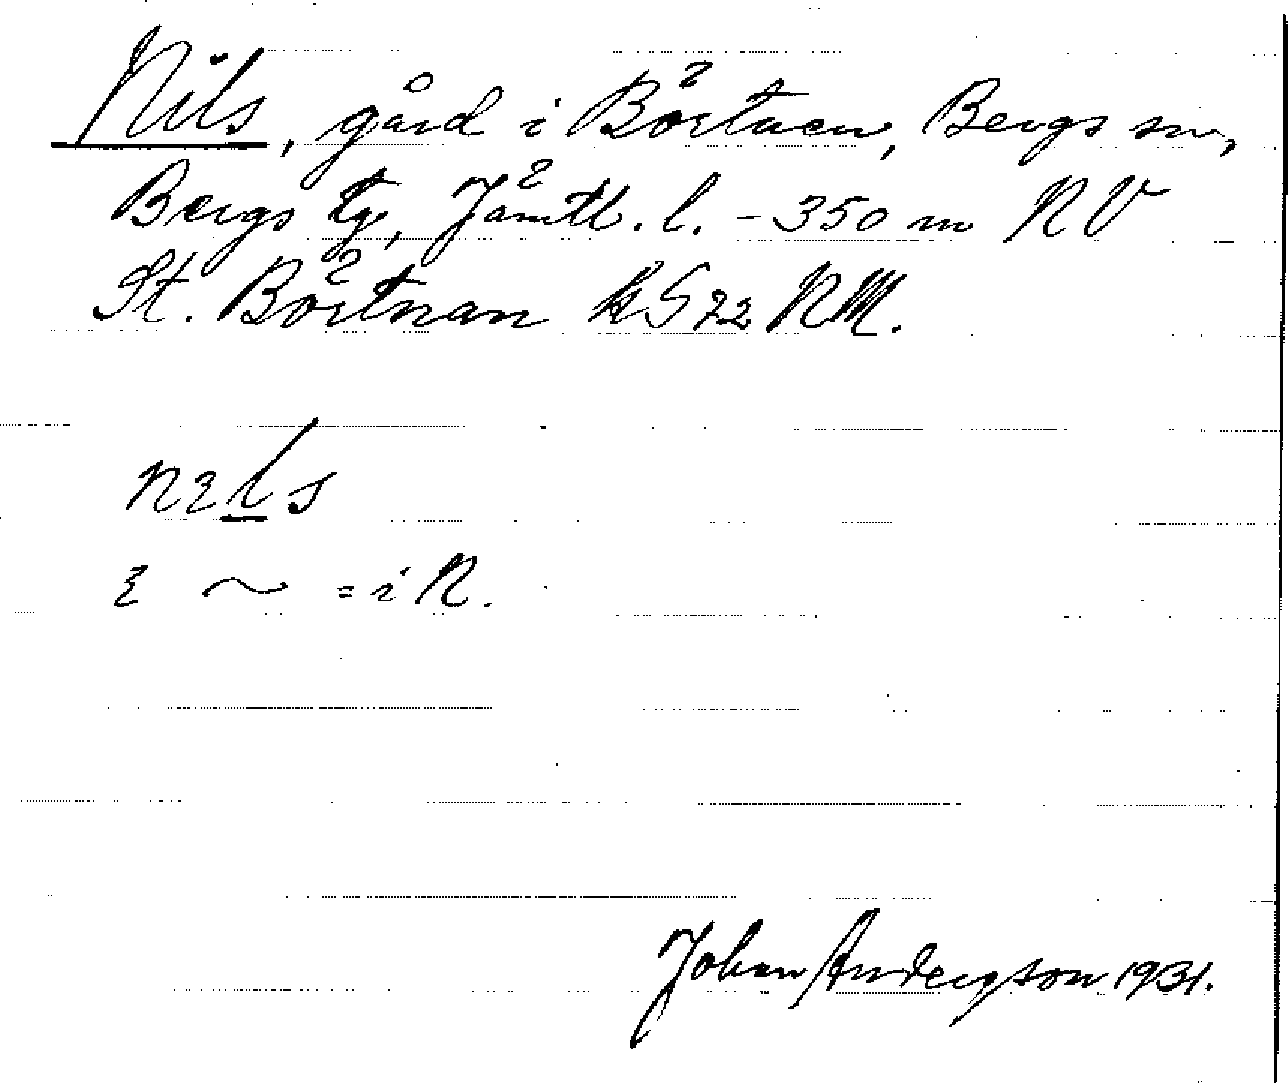 Nils, gård i Börtnen, Bergs sn,
Bergs tg, Jämtl. l. - 350 m NV
St. Börtnan kS72 NM.
nɛls
ɛ ~ = i N.
Johan Anderson 1931.